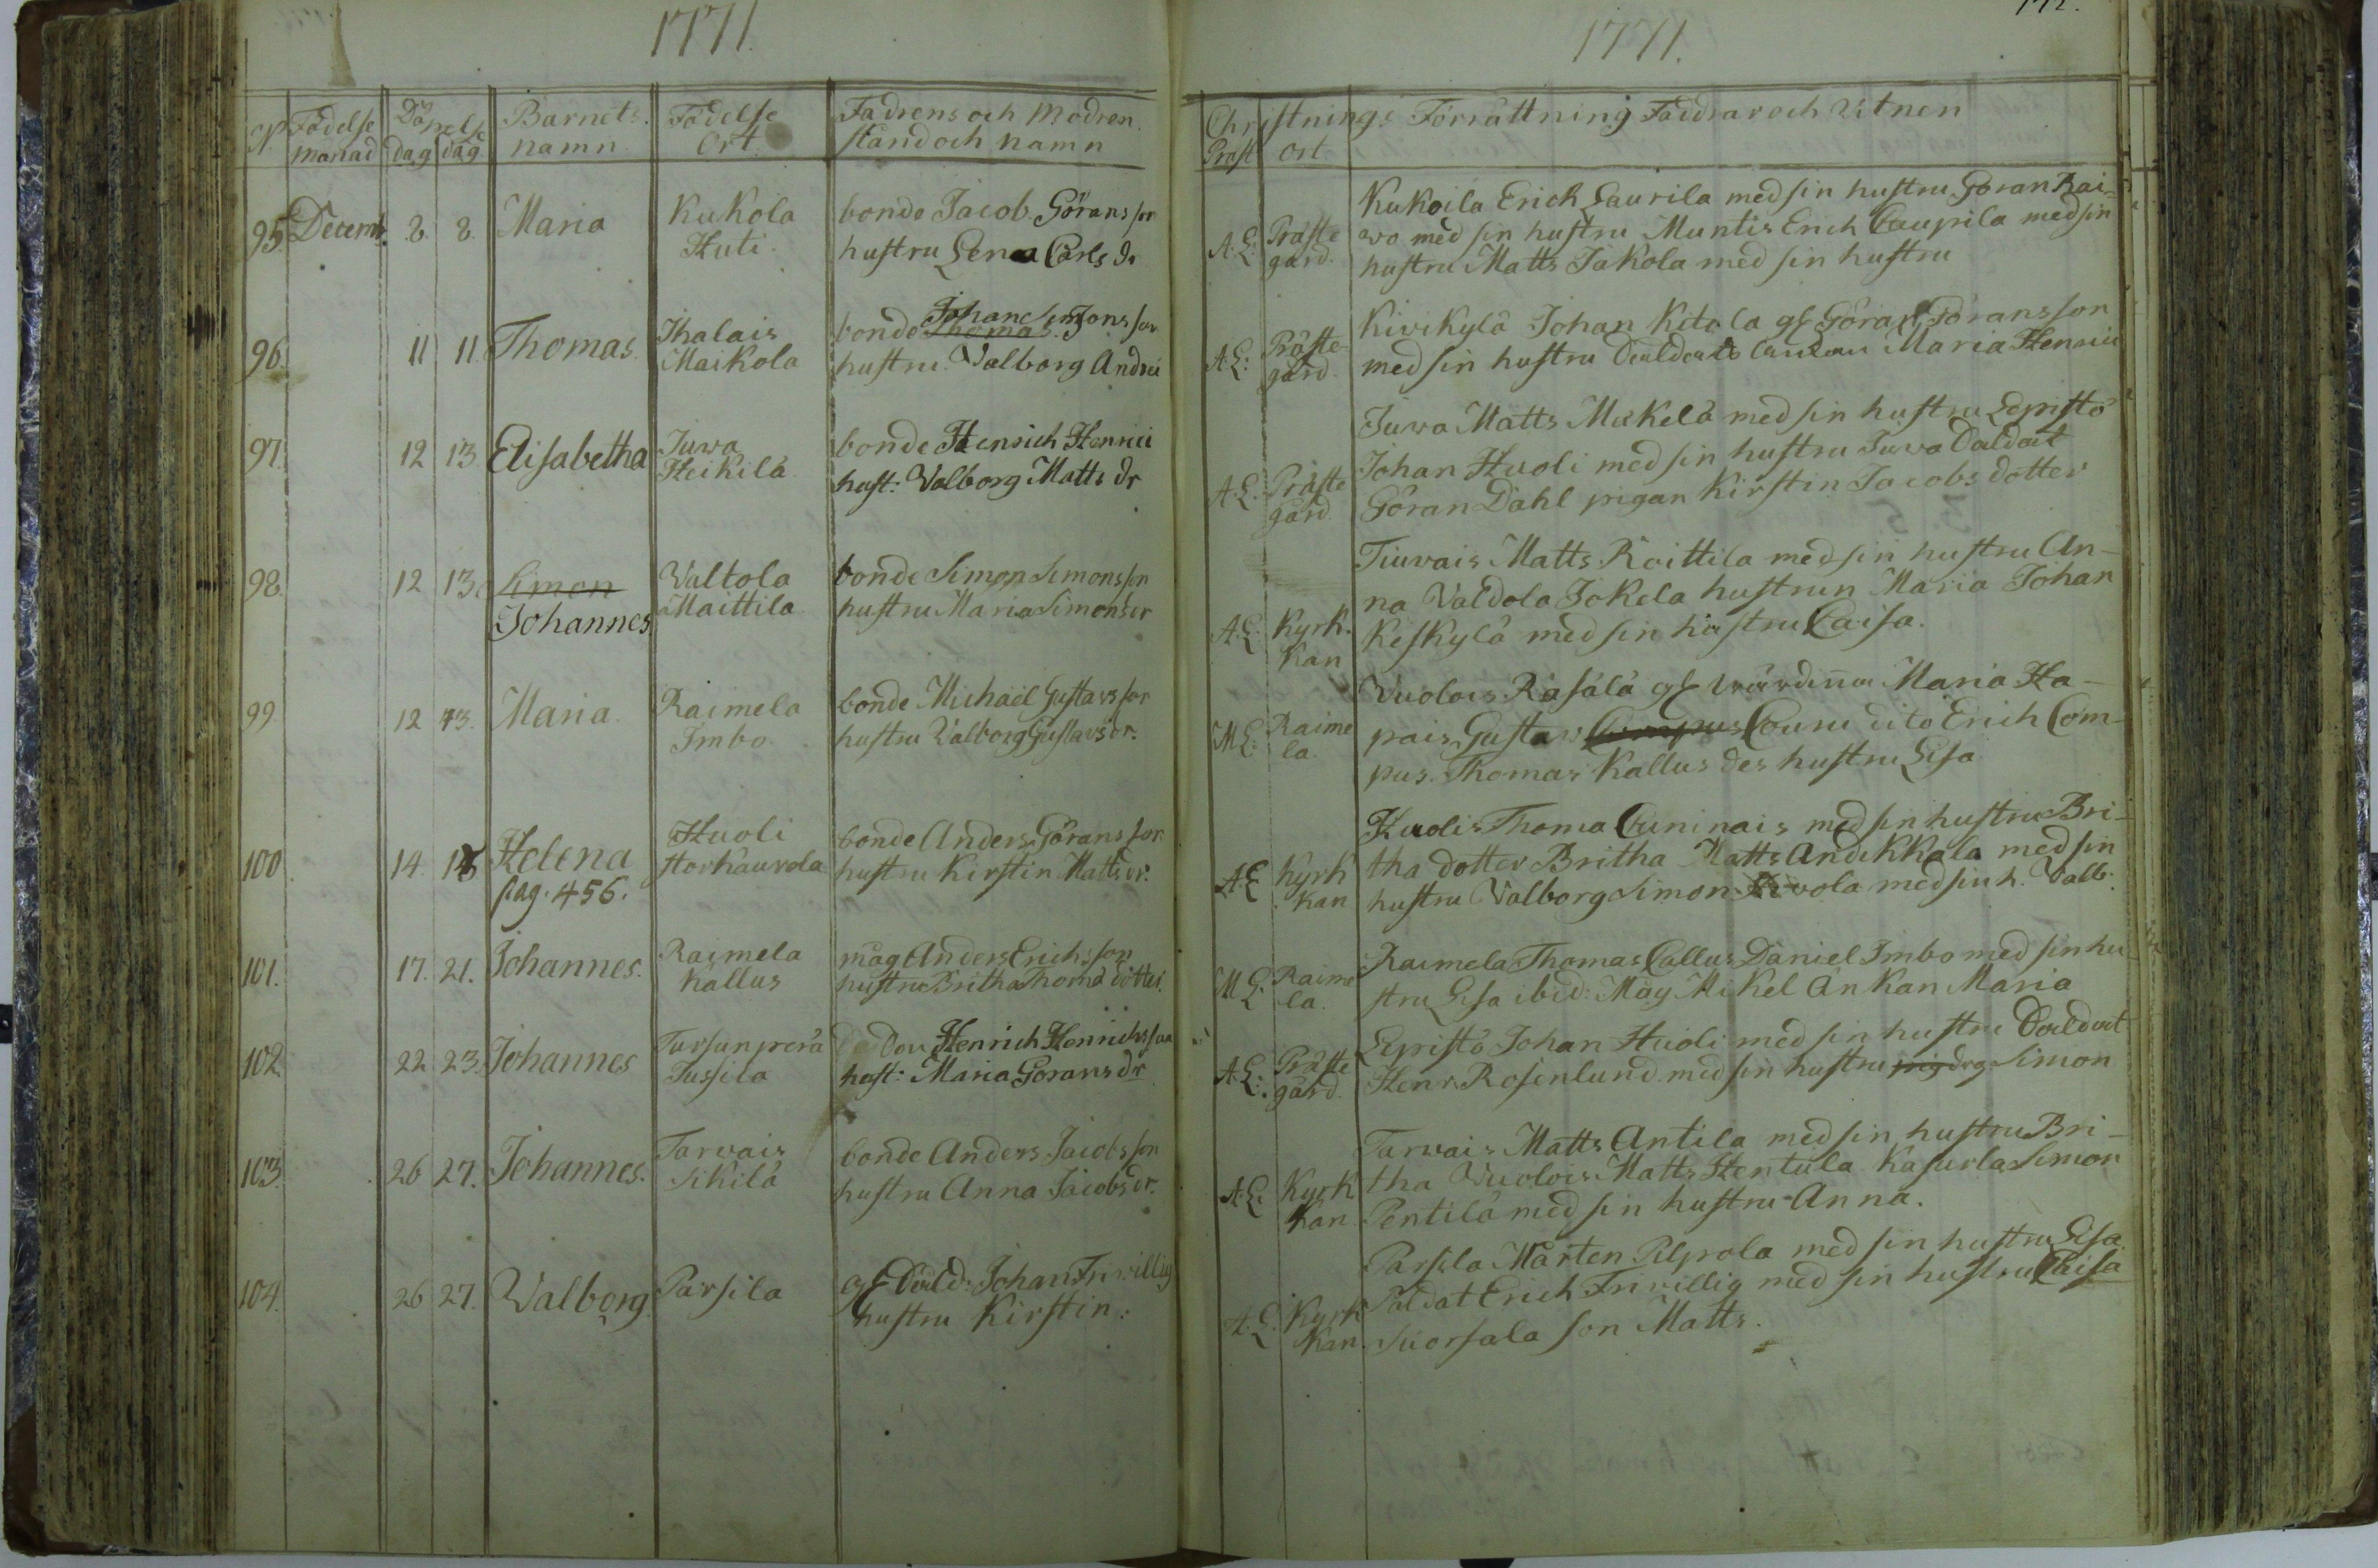 1771.
N. Födelse monad Döpelse dag dag Barnets namn Födelse Ort Fadrens och Modren stand och namn
95 Decemb. 8. 8. Maria Kukola Huti bonde Jacob Görans son
hustru Lena Carls dr
96. 11 11. Thomas. Ihalais Maikola bonde Thomas Johan Simons son
hustru Valborg Andrii
97. 12 13. Elisabetha Juva Heikilä bonde Henrich Henrici
hust: Valborg Matts dr
98. 12 13. Simon Johannes Valtola Maittila bonde Simon Simonsson
hustru Maria Simonsdr
99 12 13. Maria Raimela Imbo bonde Michaël Gustavs son
hustru Valborg Gustavs dr.
100 14. 18 Helena Huoli Storkaurola bonde Anders Görans son
pag. 456. hustru Kirstin Matts dr.
101. 17. 21. Johannes. Raimela Kallus måg Anders Erichsson
hustru Britha Thoma dotter
102. 22 23. Johannes Tursunperä Tussila Henrich Henrichsson
hust: Maria Görans dr
103. 26 27. Johannes. Tarvais Sikilä bonde Anders Jacobs son
hustru Anna Jacobs dr.
104. 26 27. Valborg. Parsila gl Johan Friwillig
hustru Kirstin:
1771.
172.
Christnings Förrättning Faddrar och Vitnen
Präst ort
A.L: Präste gård. Kukoila Erich Laurila med sin hustru Göran Rai-
vo med sin hustru Muntis Erich Caupila med sin
hustru Matts Jakola med sin hustru
A.L: Präste gård. Kivikylä Johan Kitola gl Göran Göransson
med sin hustru Maria Henrici
A.L. Präste gård. Juva Matts Mickelä med sin hustru Lepistö
Johan Huoli med sin hustru Juva
Göran Dahl pigan Kirstin Jacobs dotter
A.L. Kyrk. kan Matts Roittila med sin hustru An-
na Valdola Jokela hustrun Maria Johan
Keskylä med sin hustru Caisa.
M.L. Raime la. Vuolois Rasälä gl värdinna Maria Ha-
pais Gustav Couru dito Erich Com-
pus. Thomas Kallus des hustru Lisa
A.L Kyrk kan Huolis Thoma Cuninais med sin hustru Bri-
tha dotter Britha Matts Andikkala med sin
hustru Valborg Simon med sin h. Valb:
M.L. Raime la. Raimela Thomas Callus Daniel Imbo med sin hu-
stru Lisa ibid: Måg Mikel Änkan Maria
A.L. Präste gård. Lepistö Johan Huoli med sin hustru
Henr Rosenlund med sin hustru Simon
A.L. Kyrk kan Tarvais Matts Antila med sin hustru Bri-
tha Vuolois Matts Hentula Kasurla Simon
Pentilä med sin hustru Anna.
A.L. Kyrk kan. Parsila Mårten Pilpola med sin hustru Lisa
Erich Friwillig med sin hustru Caisa
Suorsala son Matts.